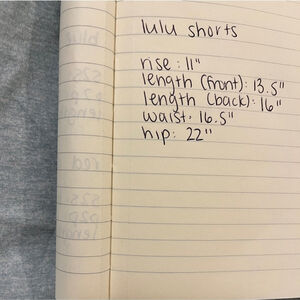 lulu shorts
rise: 11"
length (front): 13.5"
length (back): 16"
waist: 16.5"
hip: 22"